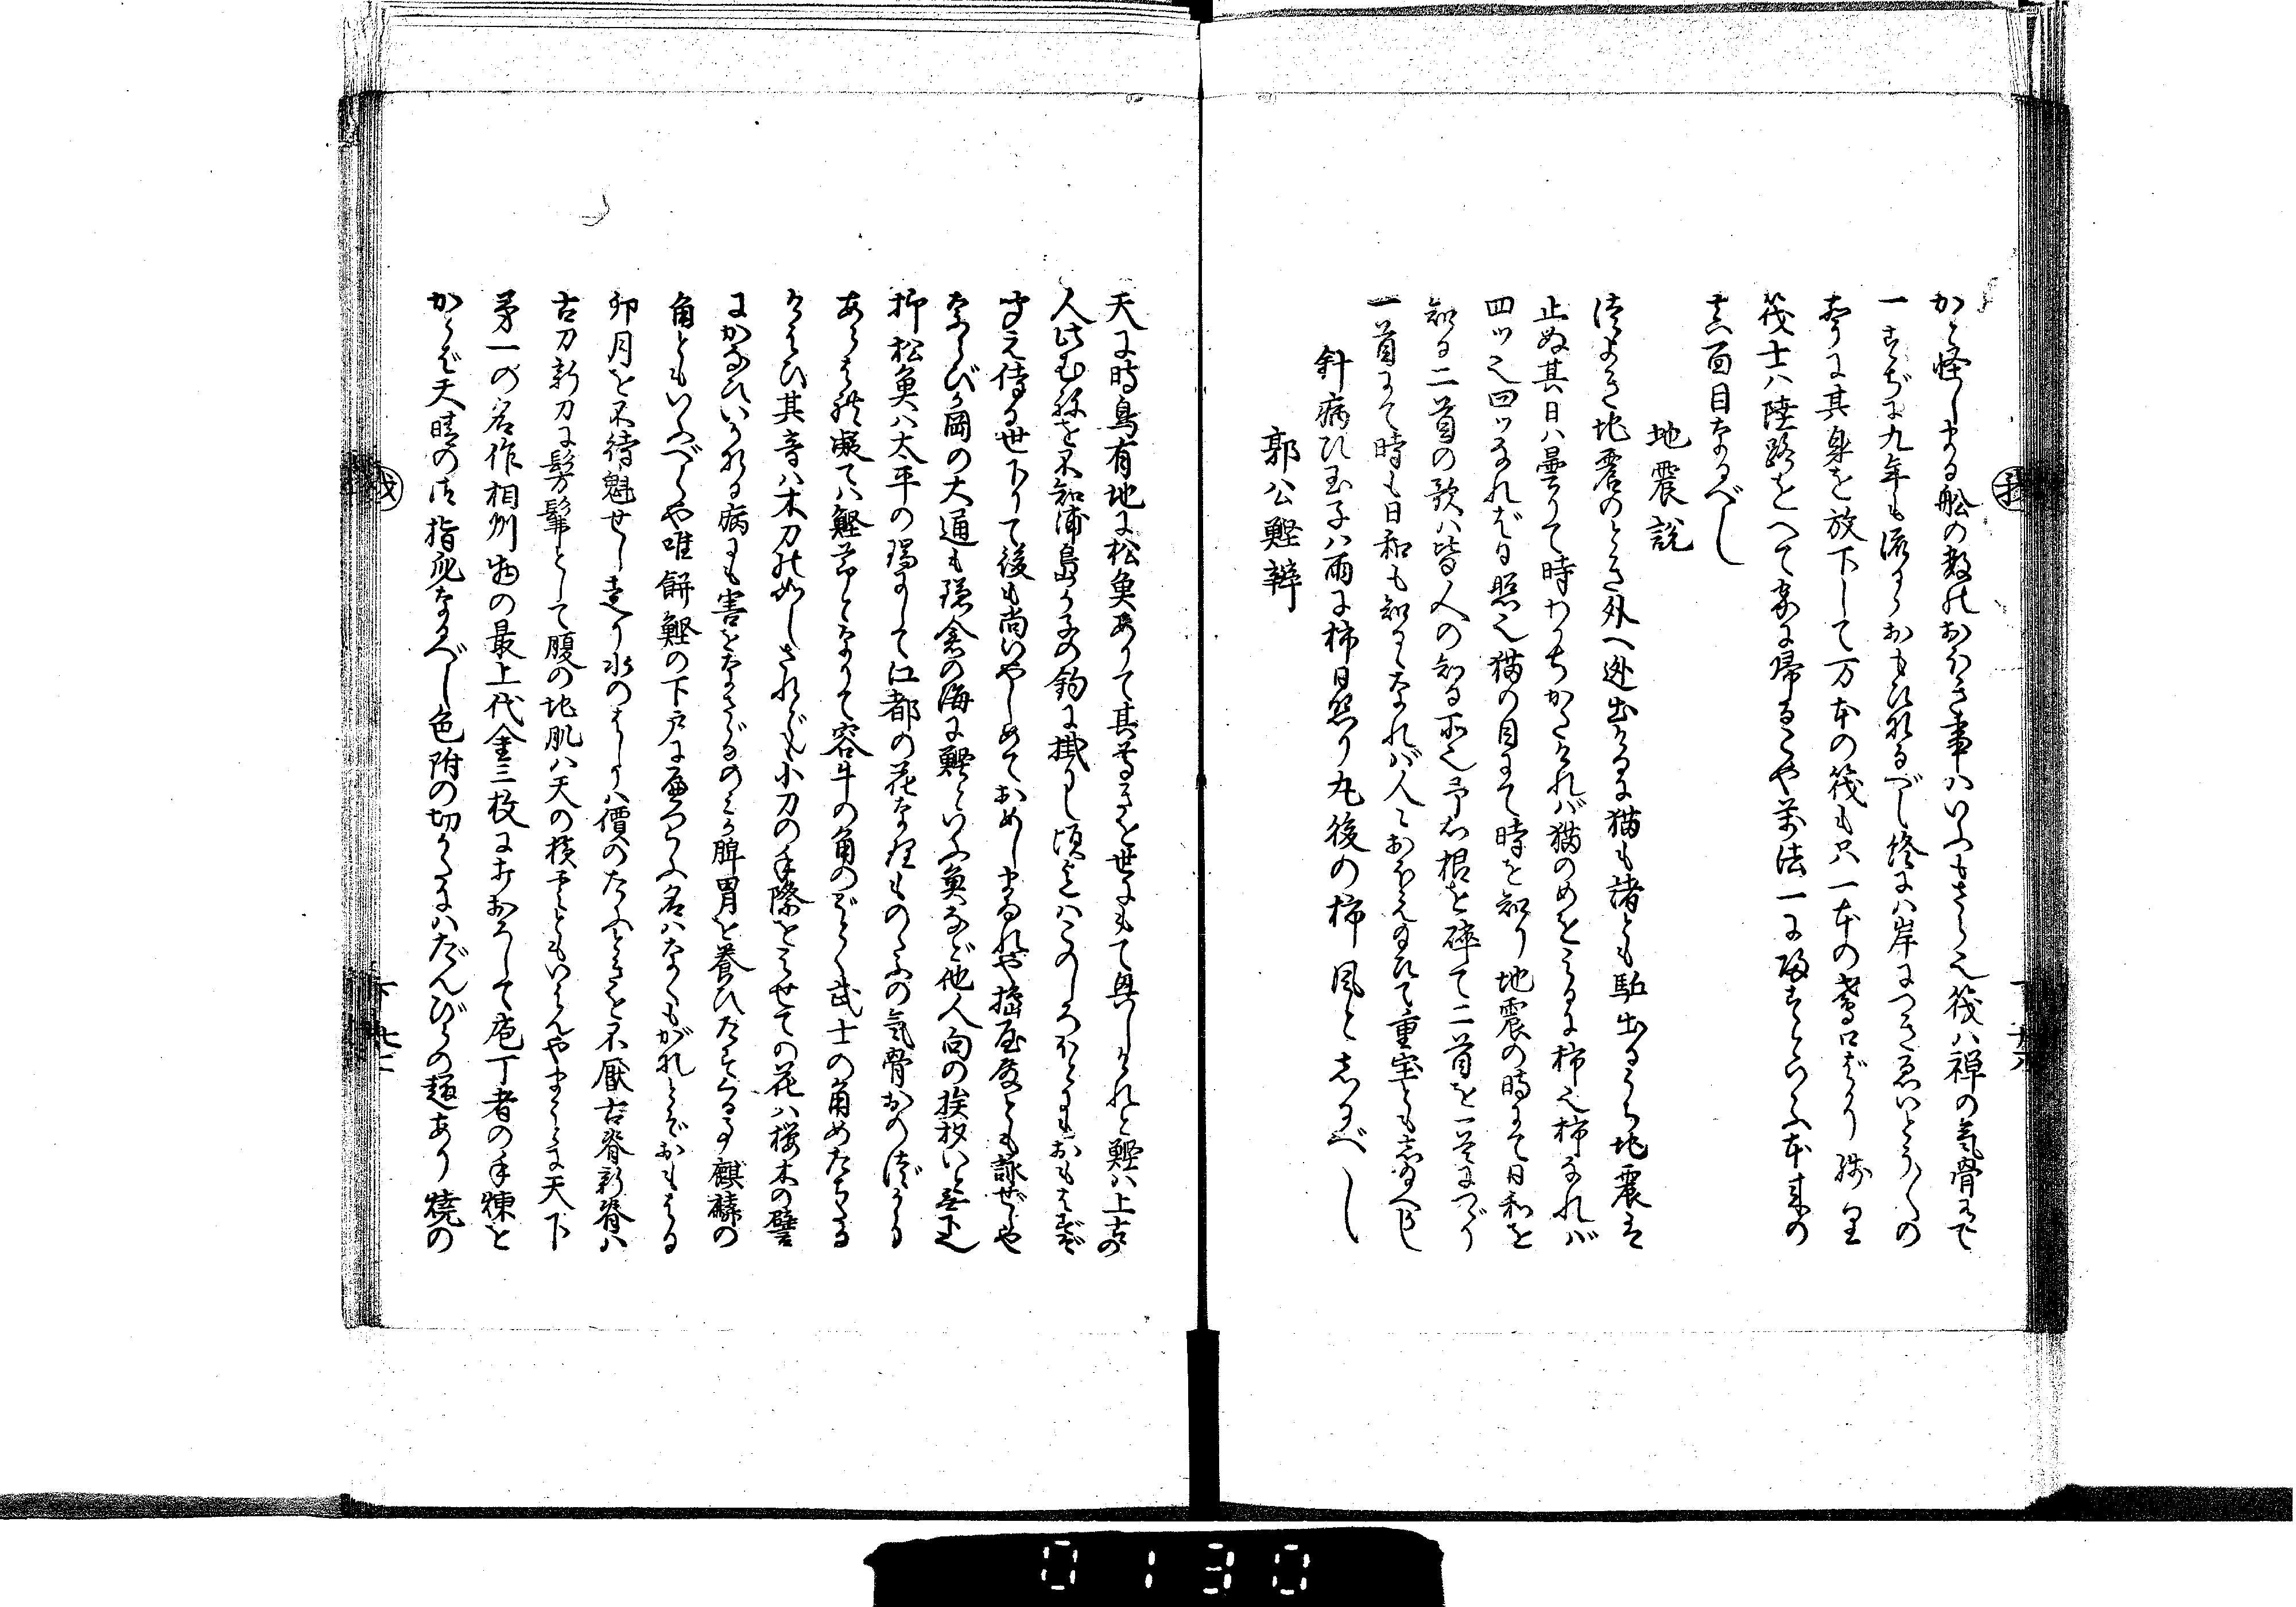 かく怪しまる舩の数のおほき事ハいふもさら也筏ハ禅の気骨にて
一すぢに九年も流るゝおもひなるべし終にハ岸につき思いとう〳〵の
おりに其身を放下して万本の筏も只一本の鳶口ばかり残り
筏士ハ陸路をへて家に帰るとや万法一に帰すといふ本来の
真面目なるべし
地震説
つよき地震のとき外へ迯出けるに猫も諸とも駈出るうち地震は
止ぬ其日ハ曇りて時わかちかたけれバ猫のめをみるに柿也柿なれバ
四ツ也四ツなれば日照也猫の目にて時を知り地震の時にて日和を
知る二首の歌ハ皆人の知る所也予心根を碎て二首を一首につゞり
一首にて時も日和も知るゝなれバ人々おぼえ給ひて重宝とも志給へかし
針病ひ玉子ハ雨に柿日照り九後の柿風と志るべし
郭公鰹辨
天に時鳥有地に松魚ありて其尊きを世にもて興しけれと鰹ハ上古の
人はむねを不知浦島が子の釣に掛りし頃迄ハこのしろほとにもおもはず
聞え侍る世下りて後も尚いやしめておめしまゐれや搗屋殿とも詠ぜしや
ならびが岡の大通も鎌倉の海に鰹といふ魚など他人向の挨拶いと無下也
抑松魚ハ太平の瑞にして江都の花なりものゝふの気骨おのづから
あらはれ凝てハ鰹節となりて容牛の角のごとく武士の角めたちたる
けはひ其音ハ木刀の如しされども小刀の手際をみせての花ハ桜木の譬
にかなひいかなる病にも害をなさゞるのみか脾胃を養ひたすくる事麒麟の
角ともいふべしや唯餅鰹の下戸にへつらふ名ハなくもがなとぞおもはる
卯月を不待魁せし走り水のはしりハ價のたふときを不厭古脊新脊ハ
古刀新刀に髣髴として腹の地肌ハ天の横雲ともいはんやまことに天下
第一の名作相州物の最上代金三枚におろして庖丁者の手煉を
からば天晴の御指死なるべし色附の切かたにハだんびらの極あり焼の